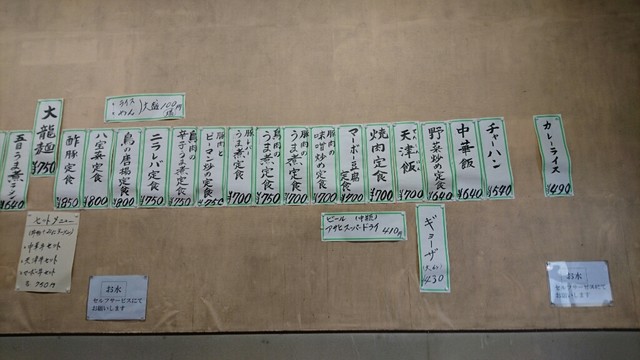 カレーライス
¥490
チャーハン
¥570
中華飯
¥640
野菜炒め定食
¥640
天津飯
¥700
焼肉定食
¥700
マーボー豆腐
定食
¥700
豚肉の
味噌炒め定食
¥700
うま煮定食
¥700
うま煮定食
¥750
うま煮定食
¥700
豚肉と
ピーマン炒め定食
鳥肉の
辛子うま煮定食
¥750
ニラレバ定食
¥750
鳥の唐揚定食
¥800
八宝菜定食
¥800
酢豚定食
¥850
大龍麺
¥750
五目うま煮
¥640
・ライス
・めん
大盛100円
増
ビール(中瓶)
アサヒスーパードライ
410円
ギョーザ
¥430
セットメニュー
・中華丼セット
・天津丼セット
・マーボー丼セット
お水
セルフサービスにて
お願いします
お水
セルフサービスにて
お願いします